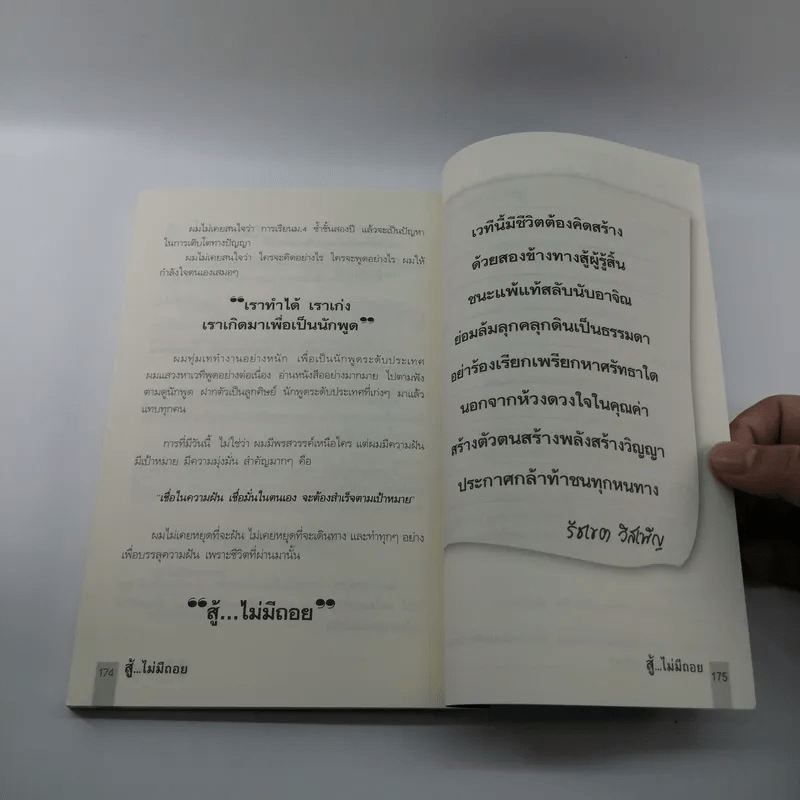 ผมไม่เคยสนใจว่า การเรียนม.4 ซ้ำชั้นสองปี แล้วจะเป็นปัญหา
ในการเติบโตทางปัญญา
ผมไม่เคยสนใจว่า ใครจะคิดอย่างไร ใครจะพูดอย่างไร ผมให้
กำลังใจตนเองเสมอๆ
"เราทำได้ เราเก่ง
เราเกิดมาเพื่อเป็นนักพูด"
ผมทุ่มเททำงานอย่างหนัก เพื่อเป็นนักพูดระดับประเทศ
ผมแสวงหาเวทีพูดอย่างต่อเนื่อง อ่านหนังสืออย่างมากมาย ไปตามฟัง
ตามดูนักพูด ฝากตัวเป็นลูกศิษย์ นักพูดระดับประเทศที่เก่งๆ มาแล้ว
แทบทุกคน
การที่มีวันนี้ ไม่ใช่ว่า ผมมีพรสวรรค์เหนือใคร แต่ผมมีความฝัน
มีเป้าหมาย มีความมุ่งมั่น สำคัญมากๆ คือ
"เชื่อในความฝัน เชื่อมั่นในตนเอง จะต้องสำเร็จตามเป้าหมาย"
ผมไม่เคยหยุดที่จะฝัน ไม่เคยหยุดที่จะเดินทาง และทำทุกๆ อย่าง
เพื่อบรรลุความฝัน เพราะชีวิตที่ผ่านมานั้น
"สู้...ไม่มีถอย"
174 สู้...ไม่มีถอย
เวทีนี้มีชีวิตต้องคิดสร้าง
ด้วยสองข้างทางสู้ผู้รู้สิ้น
ชนะแพ้แท้สลับนับอาจิณ
ย่อมล้มลุกคลุกดินเป็นธรรมดา
อย่าร้องเรียกเพรียกหาศรัทธาใด
นอกจากห้วงดวงใจในคุณค่า
สร้างตัวตนสร้างพลังสร้างวิญญา
ประกาศกล้าท้าชนทุกหนทาง
รัชเขต วีสเพ็ญ
สู้...ไม่มีถอย 175